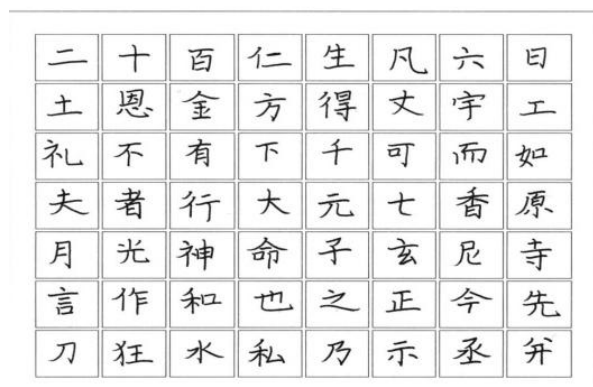 二 十 百 仁 生 凡 六 日
土 恩 金 方 得 丈 宇 工
礼 不 有 下 千 可 而 如
夫 者 行 大 元 七 香 原
月 光 神 命 子 玄 尼 寺
言 作 和 也 之 正 今 先
刀 狂 水 私 乃 示 丞 弁